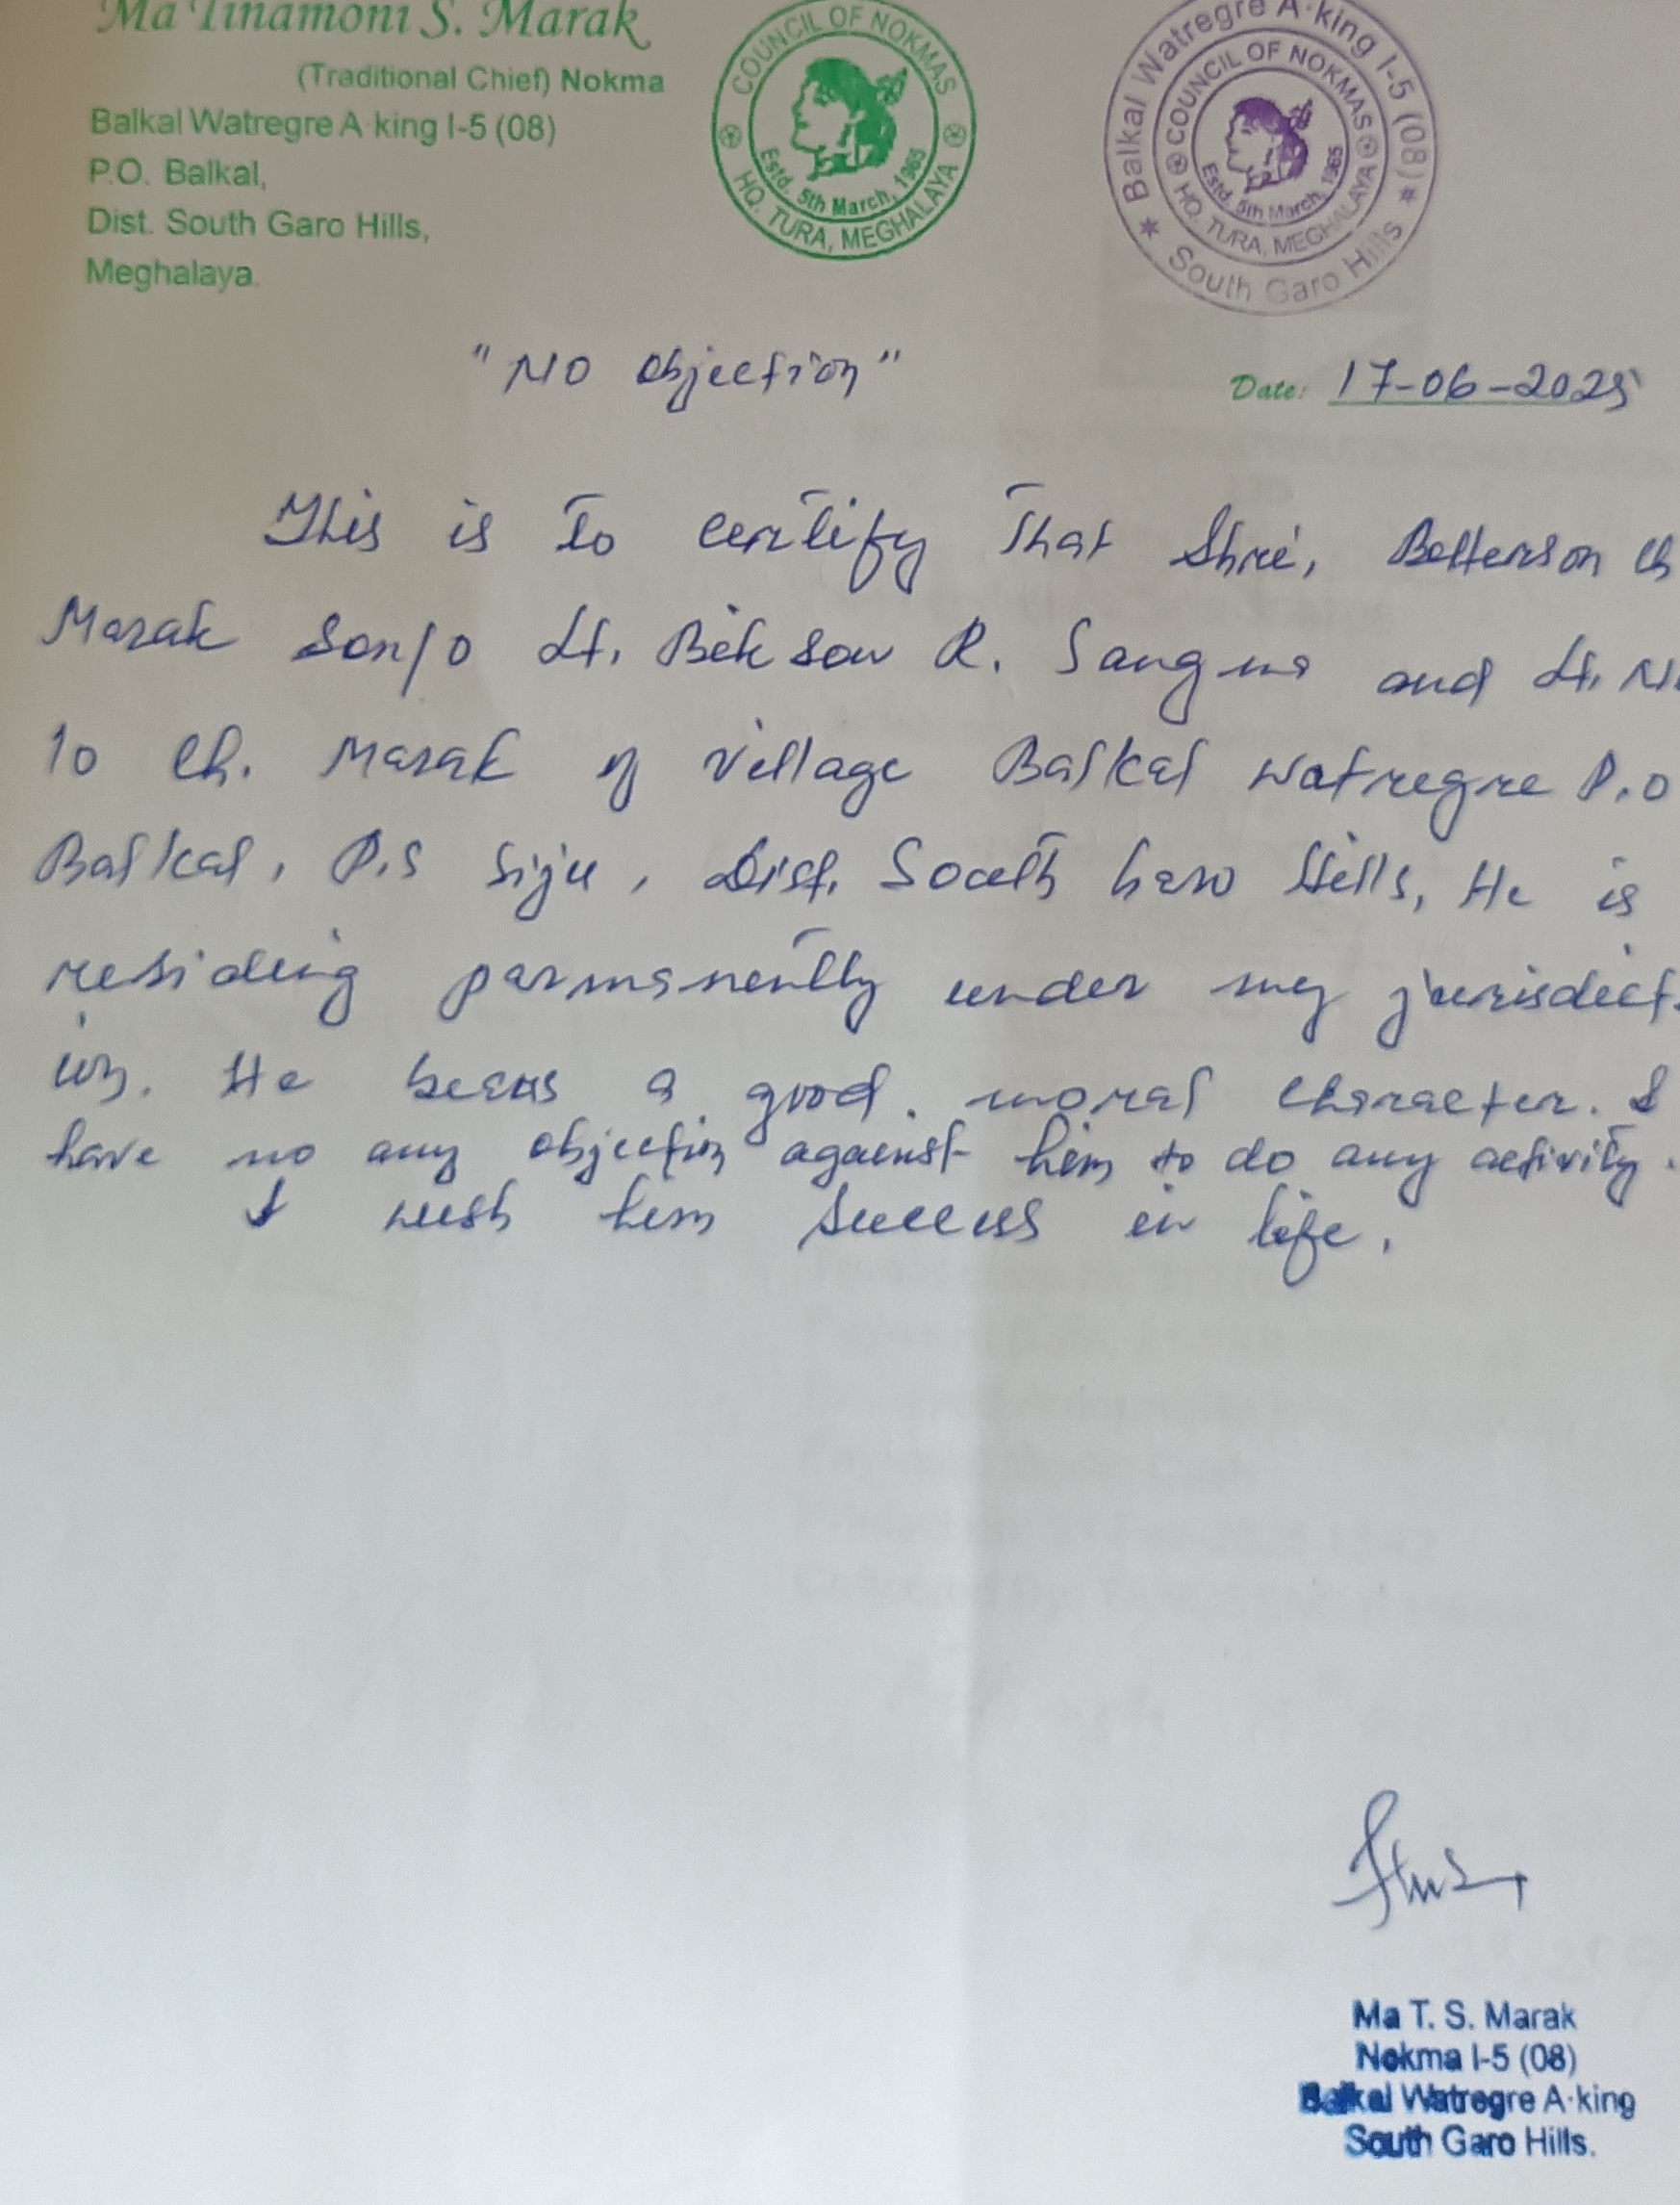 Ma Tinamoni S. Marak
(Traditional Chief) Nokma
Balkal Watregre A·king I-5 (08)
P.O. Balkal,
Dist. South Garo Hills,
Meghalaya.
COUNCIL OF NOKMAS
Estd. 5th March, 1965
HQ. TURA, MEGHALAYA
Balkal Watregre A·king I-5 (08)
COUNCIL OF NOKMAS
Estd. 5th March, 1965
HQ. TURA, MEGHALAYA
South Garo Hills
"NO Objection"
Date: 17-06-2025
This is to certify that Shri, Betterson Ch
Marak Son/o Lt. Bik son R. Sangma and Lt. Ni
to Ch. Marak of village Balkal Watregre P.O
Balkal, P.S Siju, Dist. South Garo Hills, He is
residing parmanently under my jurisdict-
ion. He bears a good moral character. I
have no any objection against him to do any activity.
I wish him success in life.
Ma T. S. Marak
Nokma I-5 (08)
Balkal Watregre A·king
South Garo Hills.